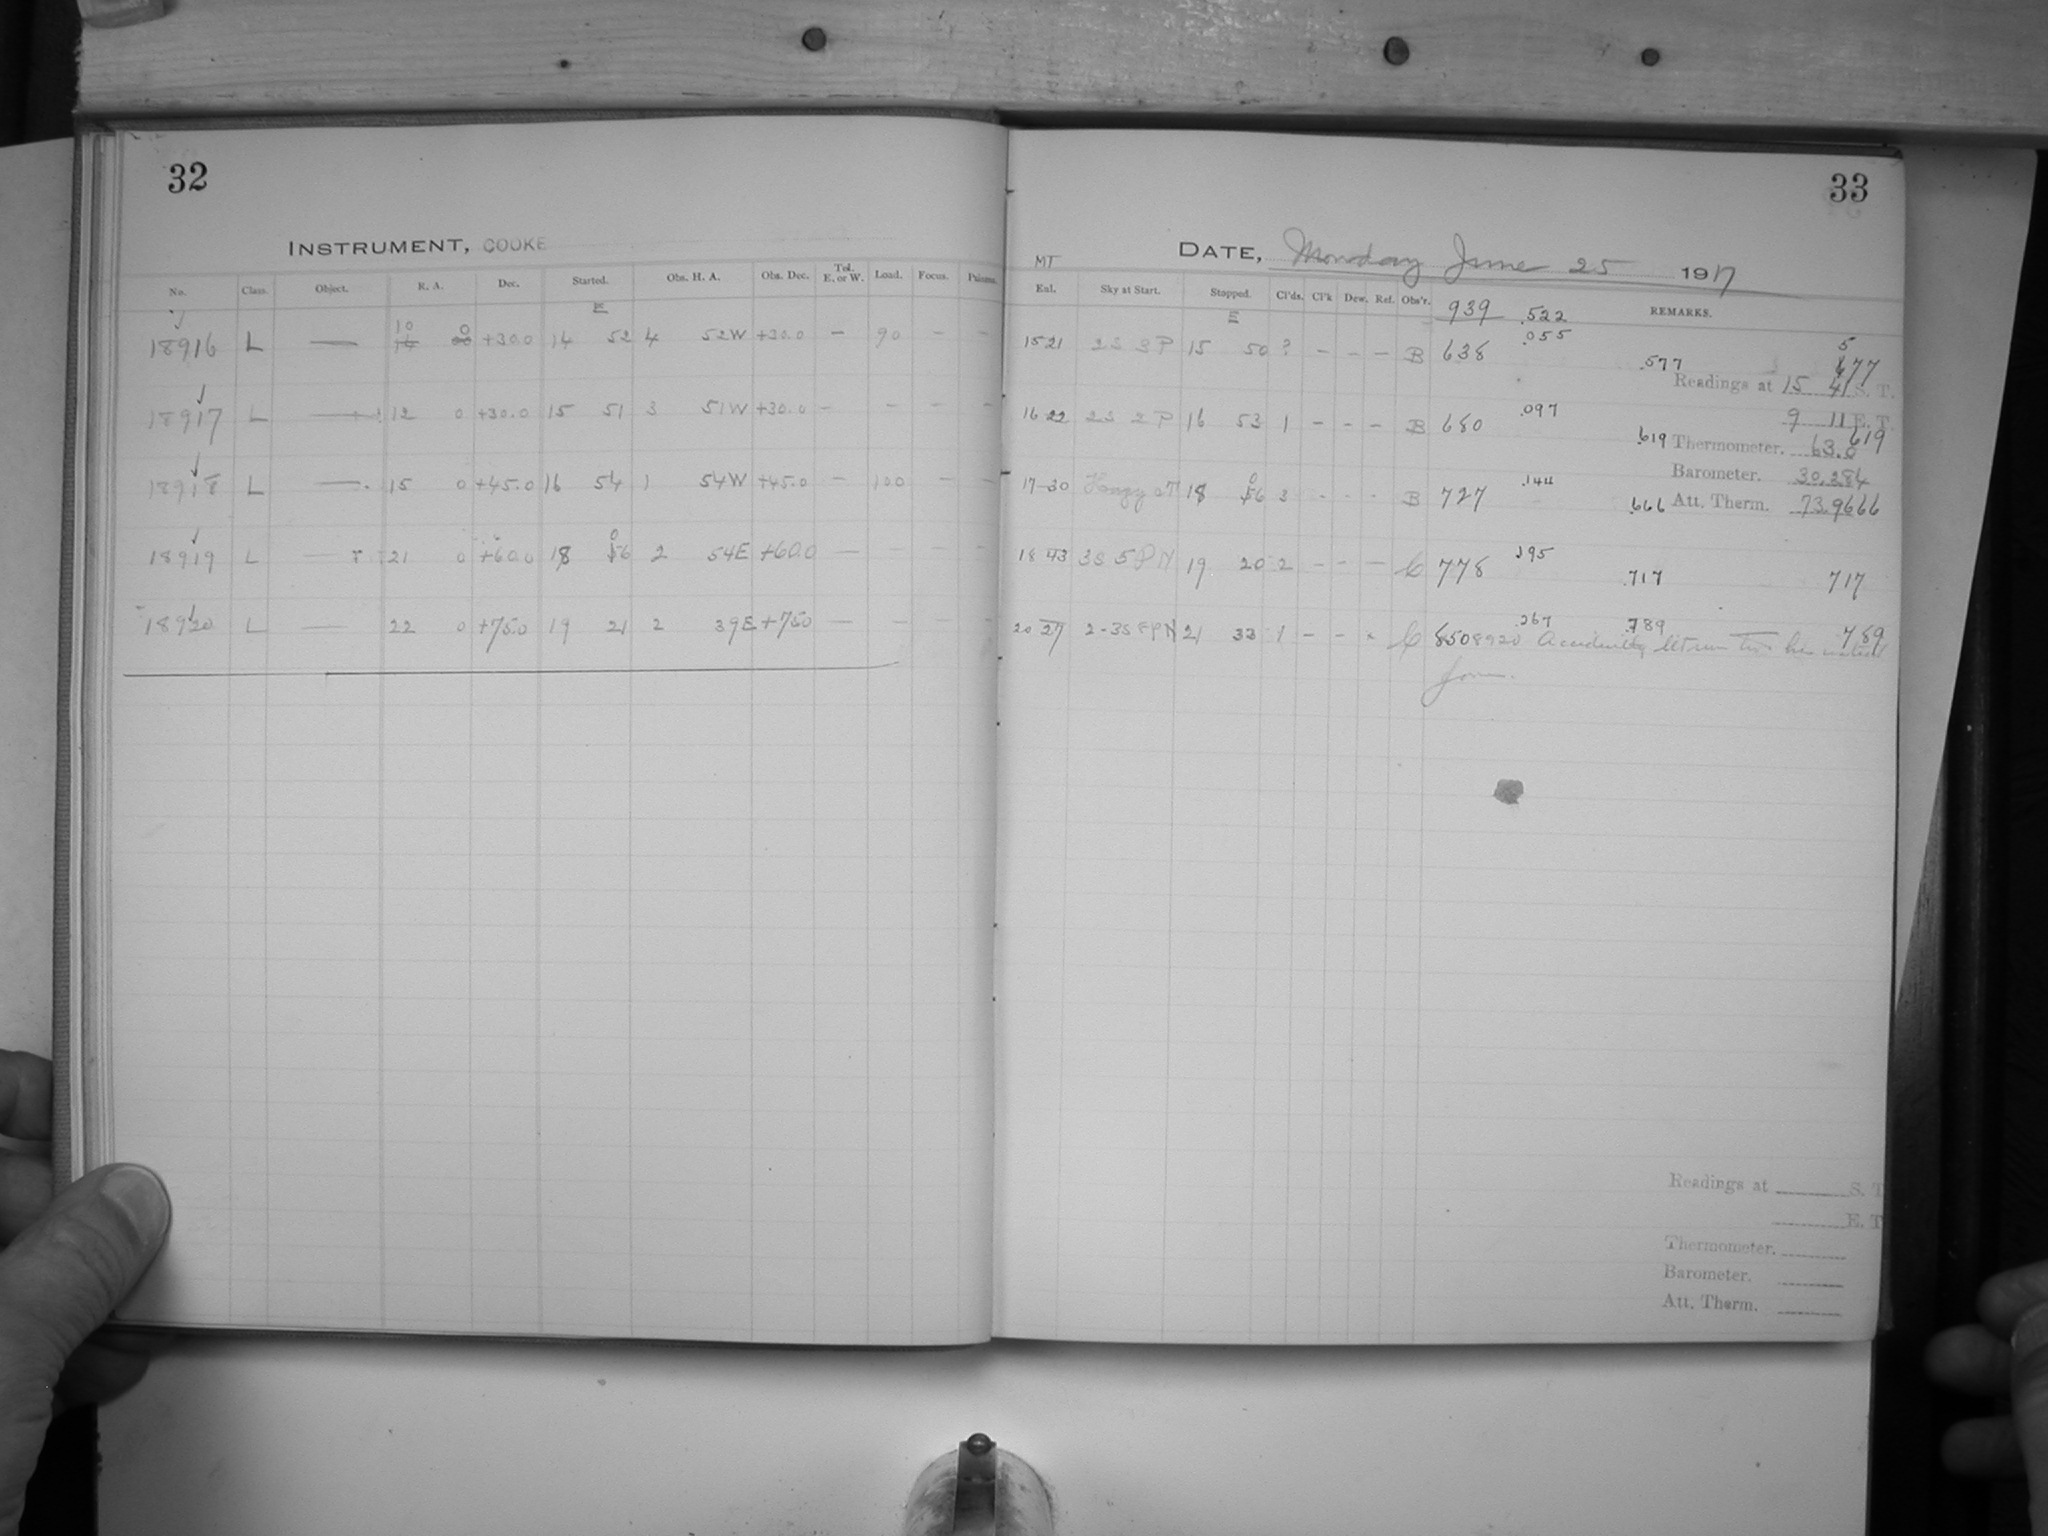 32
INSTRUMENT, COOKE
No. Class. Object. R. A. Dec. Started. Obs. H. A. Obs. Dec. Tel. E. or W. Load. Focus.
E
10 0
18916 L — +30.0 14 52 4 52W +30.0 – 90 – –
18917 L — 12 0 +30.0 15 51 3 51W +30.0 – – – –
18918 L — 15 0 +45.0 16 54 1 54W +45.0 – 100 – –
18919 L — 21 0 +60.0 18 06 2 54E +60.0 — – – –
18920 L — 22 0 +75.0 19 21 2 39E +75.0 — – – –
33
DATE, Monday June 25 1917
MT
Eul. Sky at Start. Stopped. Cl'ds. Cl'k Dew. Ref. Obs'r. 939 .522 REMARKS.
E
15 21 2S 3P 15 50 ? – – – B 638 .055 .577 577
Readings at 15 41 S. T.
16 22 2S 2P 16 53 1 – – – B 680 .097 .619 619
9 11 E. T.
Thermometer. 63.0
Barometer. 30.284
17-30 18 06 3 - - - B 727 .144 .666 666
Att. Therm. 73.9
18 43 3S 5PN 19 20 2 – – – C 778 .195 .717 717
20 27 2-3S PN 21 33 1 – – - C 850 .267 .789 789
18920 Accidently let run two hrs instead
Readings at S. T.
E. T.
Thermometer.
Barometer.
Att. Therm.